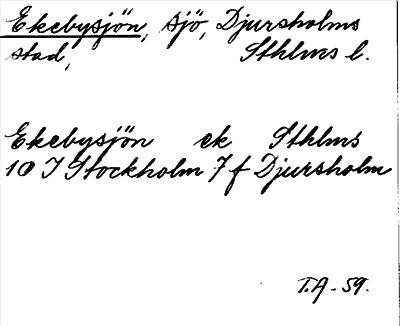 Ekebysjön, sjö, Djursholms
stad, Sthlms l.
Ekebysjön ek Sthlms
10 I Stockholm 7 f Djursholm
T.A - 59.